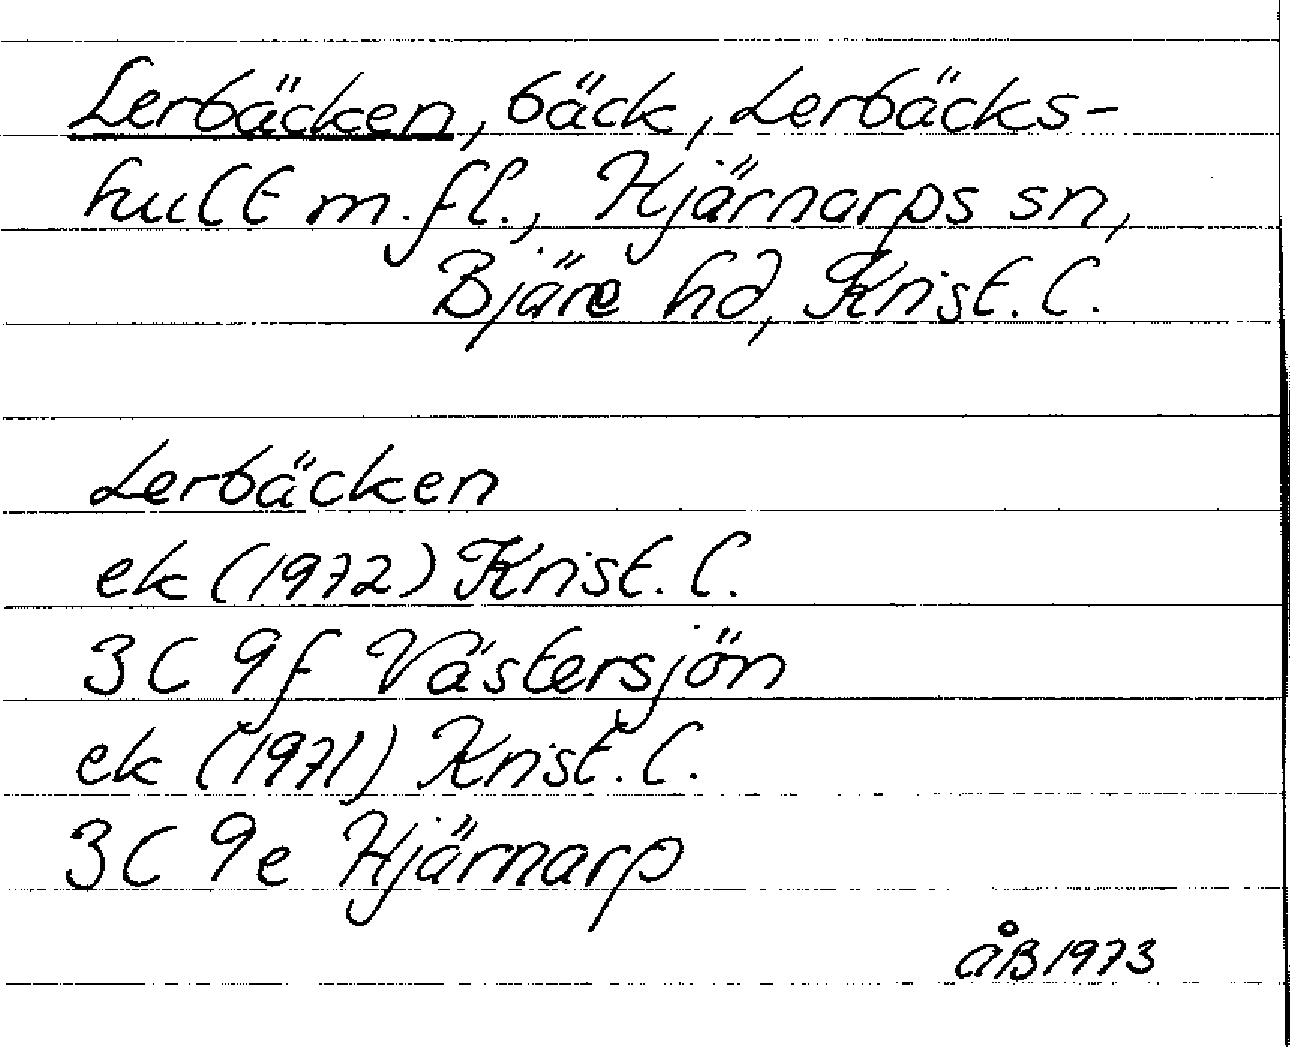 Lerbäcken, bäck, Lerbäcks-
hult m.fl., Hjärnarps sn,
Bjäre hd, Krist. l.
Lerbäcken
ek (1972) Krist. l.
3C 9f Västersjön
ek (1971) Krist. l.
3C 9e Hjärnarp
åB 1973